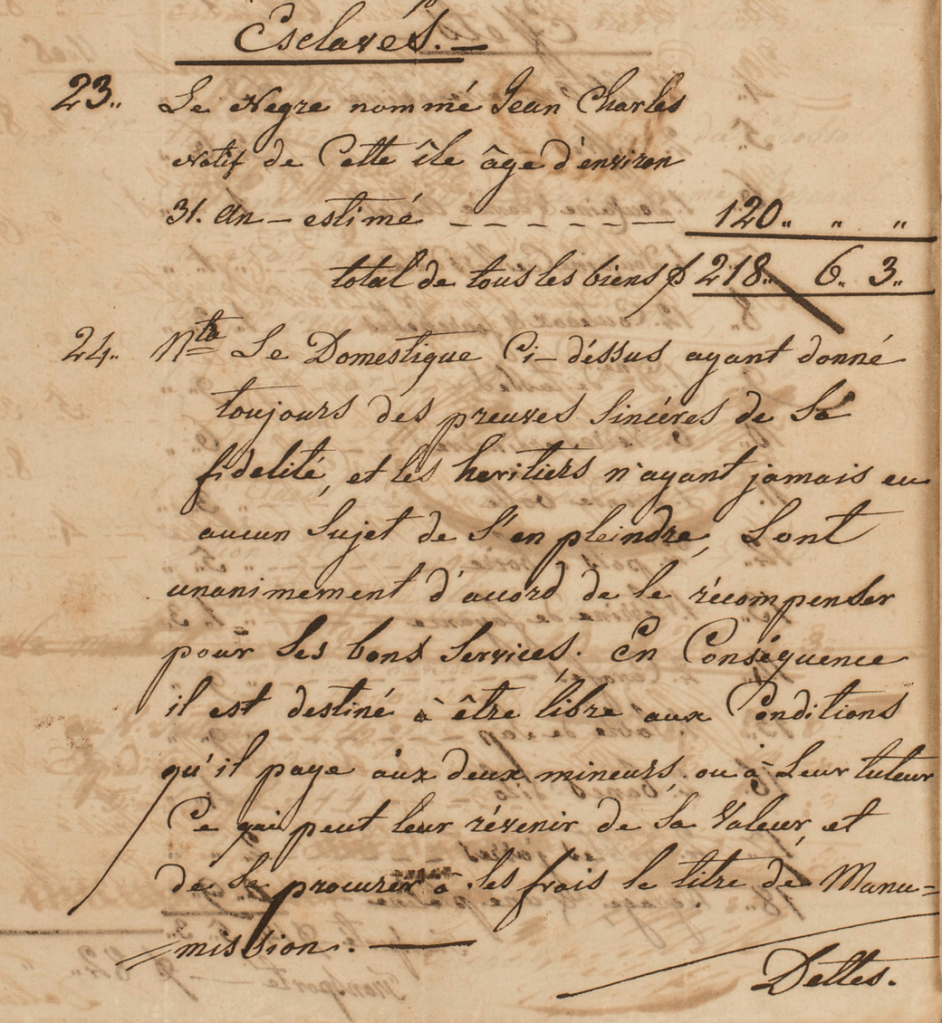 Esclaves.—
23.. Le Negre nommé Jean Charles
Natif de Cette île âge d'environ
31. an — estimé - - - - - - - 120.. " "
total de tous les biens $ 218.. 6.. 3..
24.. Nta Le Domestique Ci-déssus ayant donné
toujours des preuves sincéres de Sa
fidelité, et les heritiers n'ayant jamais eu
aucun Sujet de S'en pleindre, Sont
unanimement d'acord de le récompenser
pour Ses bons Services. En Conséquence
il est destiné à être libre aux Conditions
qu'il paye aux deux mineurs, ou à Leur tuteur
Ce qui peut leur révenir de Sa Valeur, et
de Se procurer à ses frais le titre de Manu=
=mission. —
Dettes.